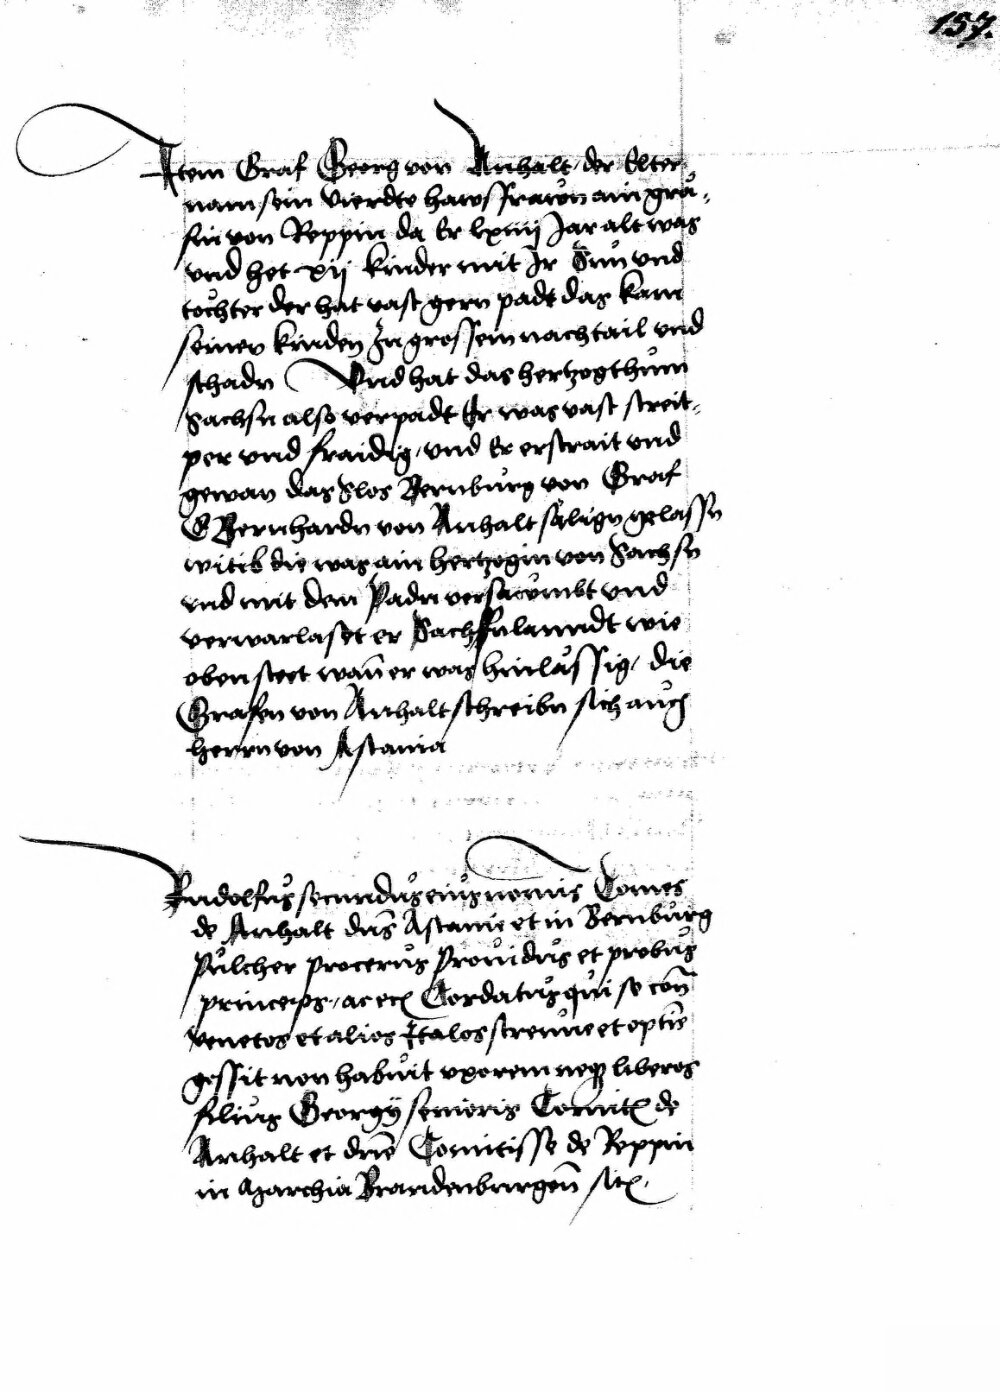 157.
Item Graf Georg von Anhalt der Elter
nam sein vierdte hawsfrawn ain grä-
fin von Reppin da Er lxiiij Jar alt was
vnd het xij kinder mit Jr Sün vnd
töchter der hat vast gern padt das kam
seinen kinden zu grossem nachtail vnd
schadn Vnd hat das hertzogthům
Sachsn also verpadt Er was vast streit-
per vnd fraidig / vnd Er erstrait vnd
gewan das Slos Bernbůrg von Graf
Bernhardn von Anhalt sälign gelassn
witib die was ain hertzogin von Sachsn
vnd mit dem Padn versawmbt vnd
verwarlaset er Sachsnlanndt wie
oben steet wañ er was hinlässig / die
Grafen von Anhalt schreibn sich aůch
herrn von Astania
Rudolfus secundus eius nominis Comes
de Anhalt dns Astanie et in Bernbůrg
Půlcher procerůs Prouidůs et probůs
princeps / ac Cordatus qůi se con
venetos et alios Italos strenue et optie
gessit non habůit vxorem neqz liberos
filius Georgÿ senioris Comitis de
Anhalt et dne Comitisse de Reppin
in Marchia Brandenburgen sitx.